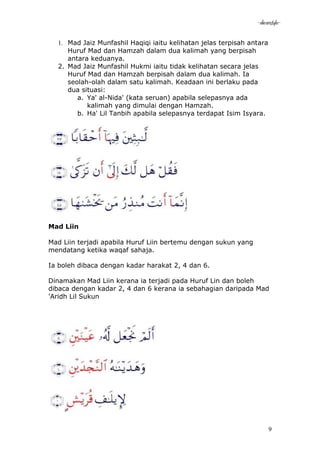 -alwanstyle-
1. Mad Jaiz Munfashil Haqiqi iaitu kelihatan jelas terpisah antara
Huruf Mad dan Hamzah dalam dua kalimah yang berpisah
antara keduanya.
2. Mad Jaiz Munfashil Hukmi iaitu tidak kelihatan secara jelas
Huruf Mad dan Hamzah berpisah dalam dua kalimah. Ia
seolah-olah dalam satu kalimah. Keadaan ini berlaku pada
dua situasi:
a. Ya' al-Nida' (kata seruan) apabila selepasnya ada
kalimah yang dimulai dengan Hamzah.
b. Ha' Lil Tanbih apabila selepasnya terdapat Isim Isyara.
لَّٰبِثِينَ فِيهَآ أَحْقَابًا ﴿٢٣﴾
فَقُلْ هَل لَّكَ إِلَىٰٓ أَن تَزَكَّىٰ ﴿١٨﴾
إِنَّمَآ أَنتَ مُنذِرُ مَن يَخْشَىٰهَا ﴿٤٥﴾
Mad Liin
Mad Liin terjadi apabila Huruf Liin bertemu dengan sukun yang
mendatang ketika waqaf sahaja.
Ia boleh dibaca dengan kadar harakat 2, 4 dan 6.
Dinamakan Mad Liin kerana ia terjadi pada Huruf Lin dan boleh
dibaca dengan kadar 2, 4 dan 6 kerana ia sebahagian daripada Mad
'Aridh Lil Sukun
أَلَمْ نَجْعَل لَّهُۥ عَيْنَيْنِ ﴿٨﴾
وَهَدَيْنَٰهُ ٱلنَّجْدَيْنِ ﴿١٠﴾
لِإِيلَٰفِ قُرَيْشٍ ﴿١﴾
9